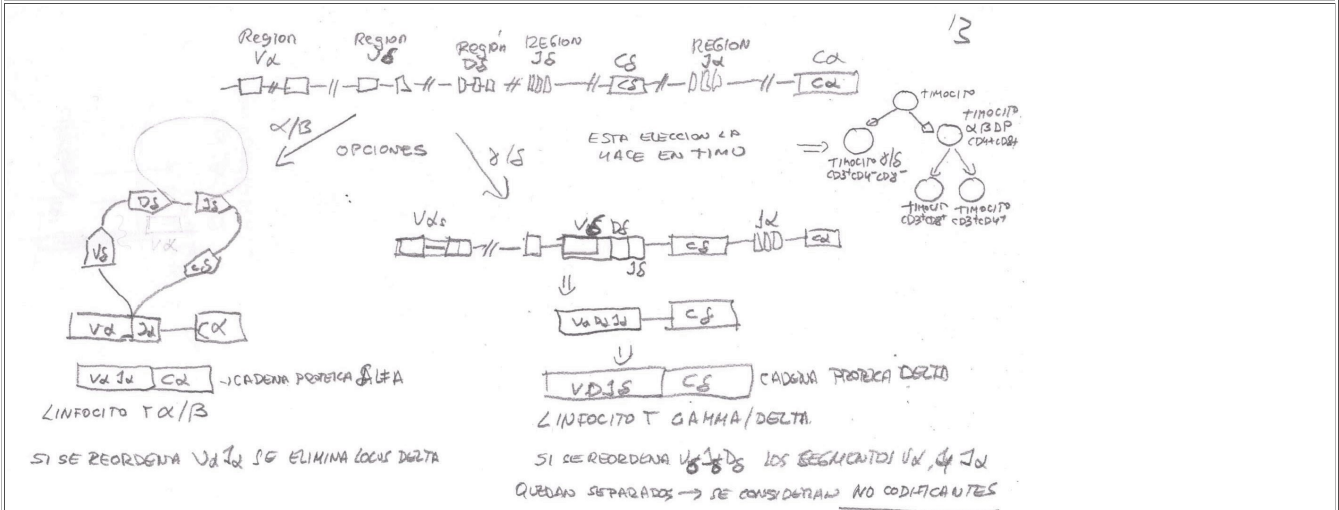 13
Region Vα
Region Jδ
Región Dδ
REGION Jδ
Cδ
REGION Jα
Cα
Cδ
Cα
α/β
OPCIONES
γ/δ
ESTA ELECCION LA
HACE EN TIMO
TIMOCITO
TIMOCITO
αβDP
CD4+CD8+
TIMOCITO γ/δ
CD3+CD4-CD8-
TIMOCITO
CD3+CD8+
TIMOCITO
CD3+CD4+
Dδ
Jδ
Vδ
Cδ
Vα
Vα Jα
Cα
Vα Jα Cα → CADENA PROTEICA ALFA
LINFOCITO T α/β
SI SE REORDENA Vα Jα SE ELIMINA LOCUS DELTA
Vαs
Vδ Dδ
Jδ
Cδ
Jα
Cα
Cδ
VDJδ Cδ CADENA PROTEICA DELTA
LINFOCITO T GAMMA/DELTA
SI SE REORDENA Vδ Jδ Dδ LOS SEGMENTOS Vα, Jα
QUEDAN SEPARADOS → SE CONSIDERAN NO CODIFICANTES